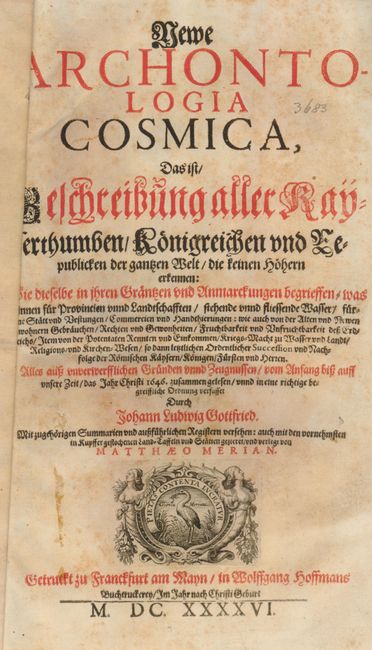 Newe
ARCHONTO-
LOGIA
3683
COSMICA,
Das ist/
Beschreibung aller Käy-
serthumben/ Königreichen vnd Re-
publicken der gantzen Welt/ die keinen Höhern
erkennen:
Wie dieselbe in ihren Gräntzen vnd Anmarckungen begrieffen/ was
innen für Provintien vnnd Landschafften/ stehende vnnd fliessende Wasser/ für-
ne Stätt vnd Vestungen/ Commercien vnd Handthierungen: wie auch von der Alten vnd Newen
wohnern Gebräuchen/ Rechten vnd Gewonheiten/ Fruchtbarkeit vnd Vnfruchtbarkeit deß Erd-
reichs/ Item von der Potentaten Renten vnd Einkommen/ Kriegs-Macht zu Wasser vnd Landt/
Religions-vnd Kirchen-Wesen/ so dann letzlichen Ordentlicher Succession vnd Nach-
folge der Römischen Käysern/ Königen/ Fürsten vnd Herren.
Alles auß vnverwerfflichen Gründen vnnd Zeugnussen/ vom Anfang biß auff
vnsere Zeit/ das Jahr Christi 1646. zusammen gelesen/ vnnd in eine richtige be-
greiffliche Ordnung verfasset
Durch
Johann Ludwig Gottfried.
Mit zugehörigen Summarien vnd außführlichen Registern versehen: auch mit den vornehmsten
in Kupffer gestochenen Land-Taffeln vnd Stätten gezieret/ vnd verlegt von
MATTHÆO MERIAN.
PIETAS CONTENTA LUCRATUR
Getruckt zu Franckfurt am Mayn/ in Wolffgang Hoffmans
Buchtruckerey/ Im Jahr nach Christi Geburt
M. DC. XXXXVI.